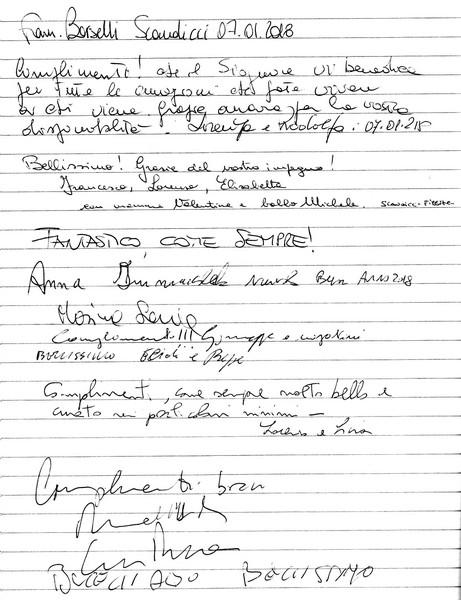 Fam. Borselli Scandicci 07.01.2018
Complimenti! che il Signore vi benedica
per tutte le emozioni che fate vivere
a chi viene grazie ancora per la vostra
disponibilità - Lorenza e Rodolfo. 07.01.218
Bellissimo! Grazie del vostro impegno!
Francesco, Lorenzo, Elisabetta
con mamma Valentina e babbo Michele. Scandicci-Firenze
FANTASTICO COME SEMPRE!
Anna Buon Anno 2018
Complimenti!!! Giuseppe e
BELLISSIMO
Complimenti, come sempre molto bello e
curato nei particolari minimi -
e Lina
Complimenti bravi
BELLISSIMO